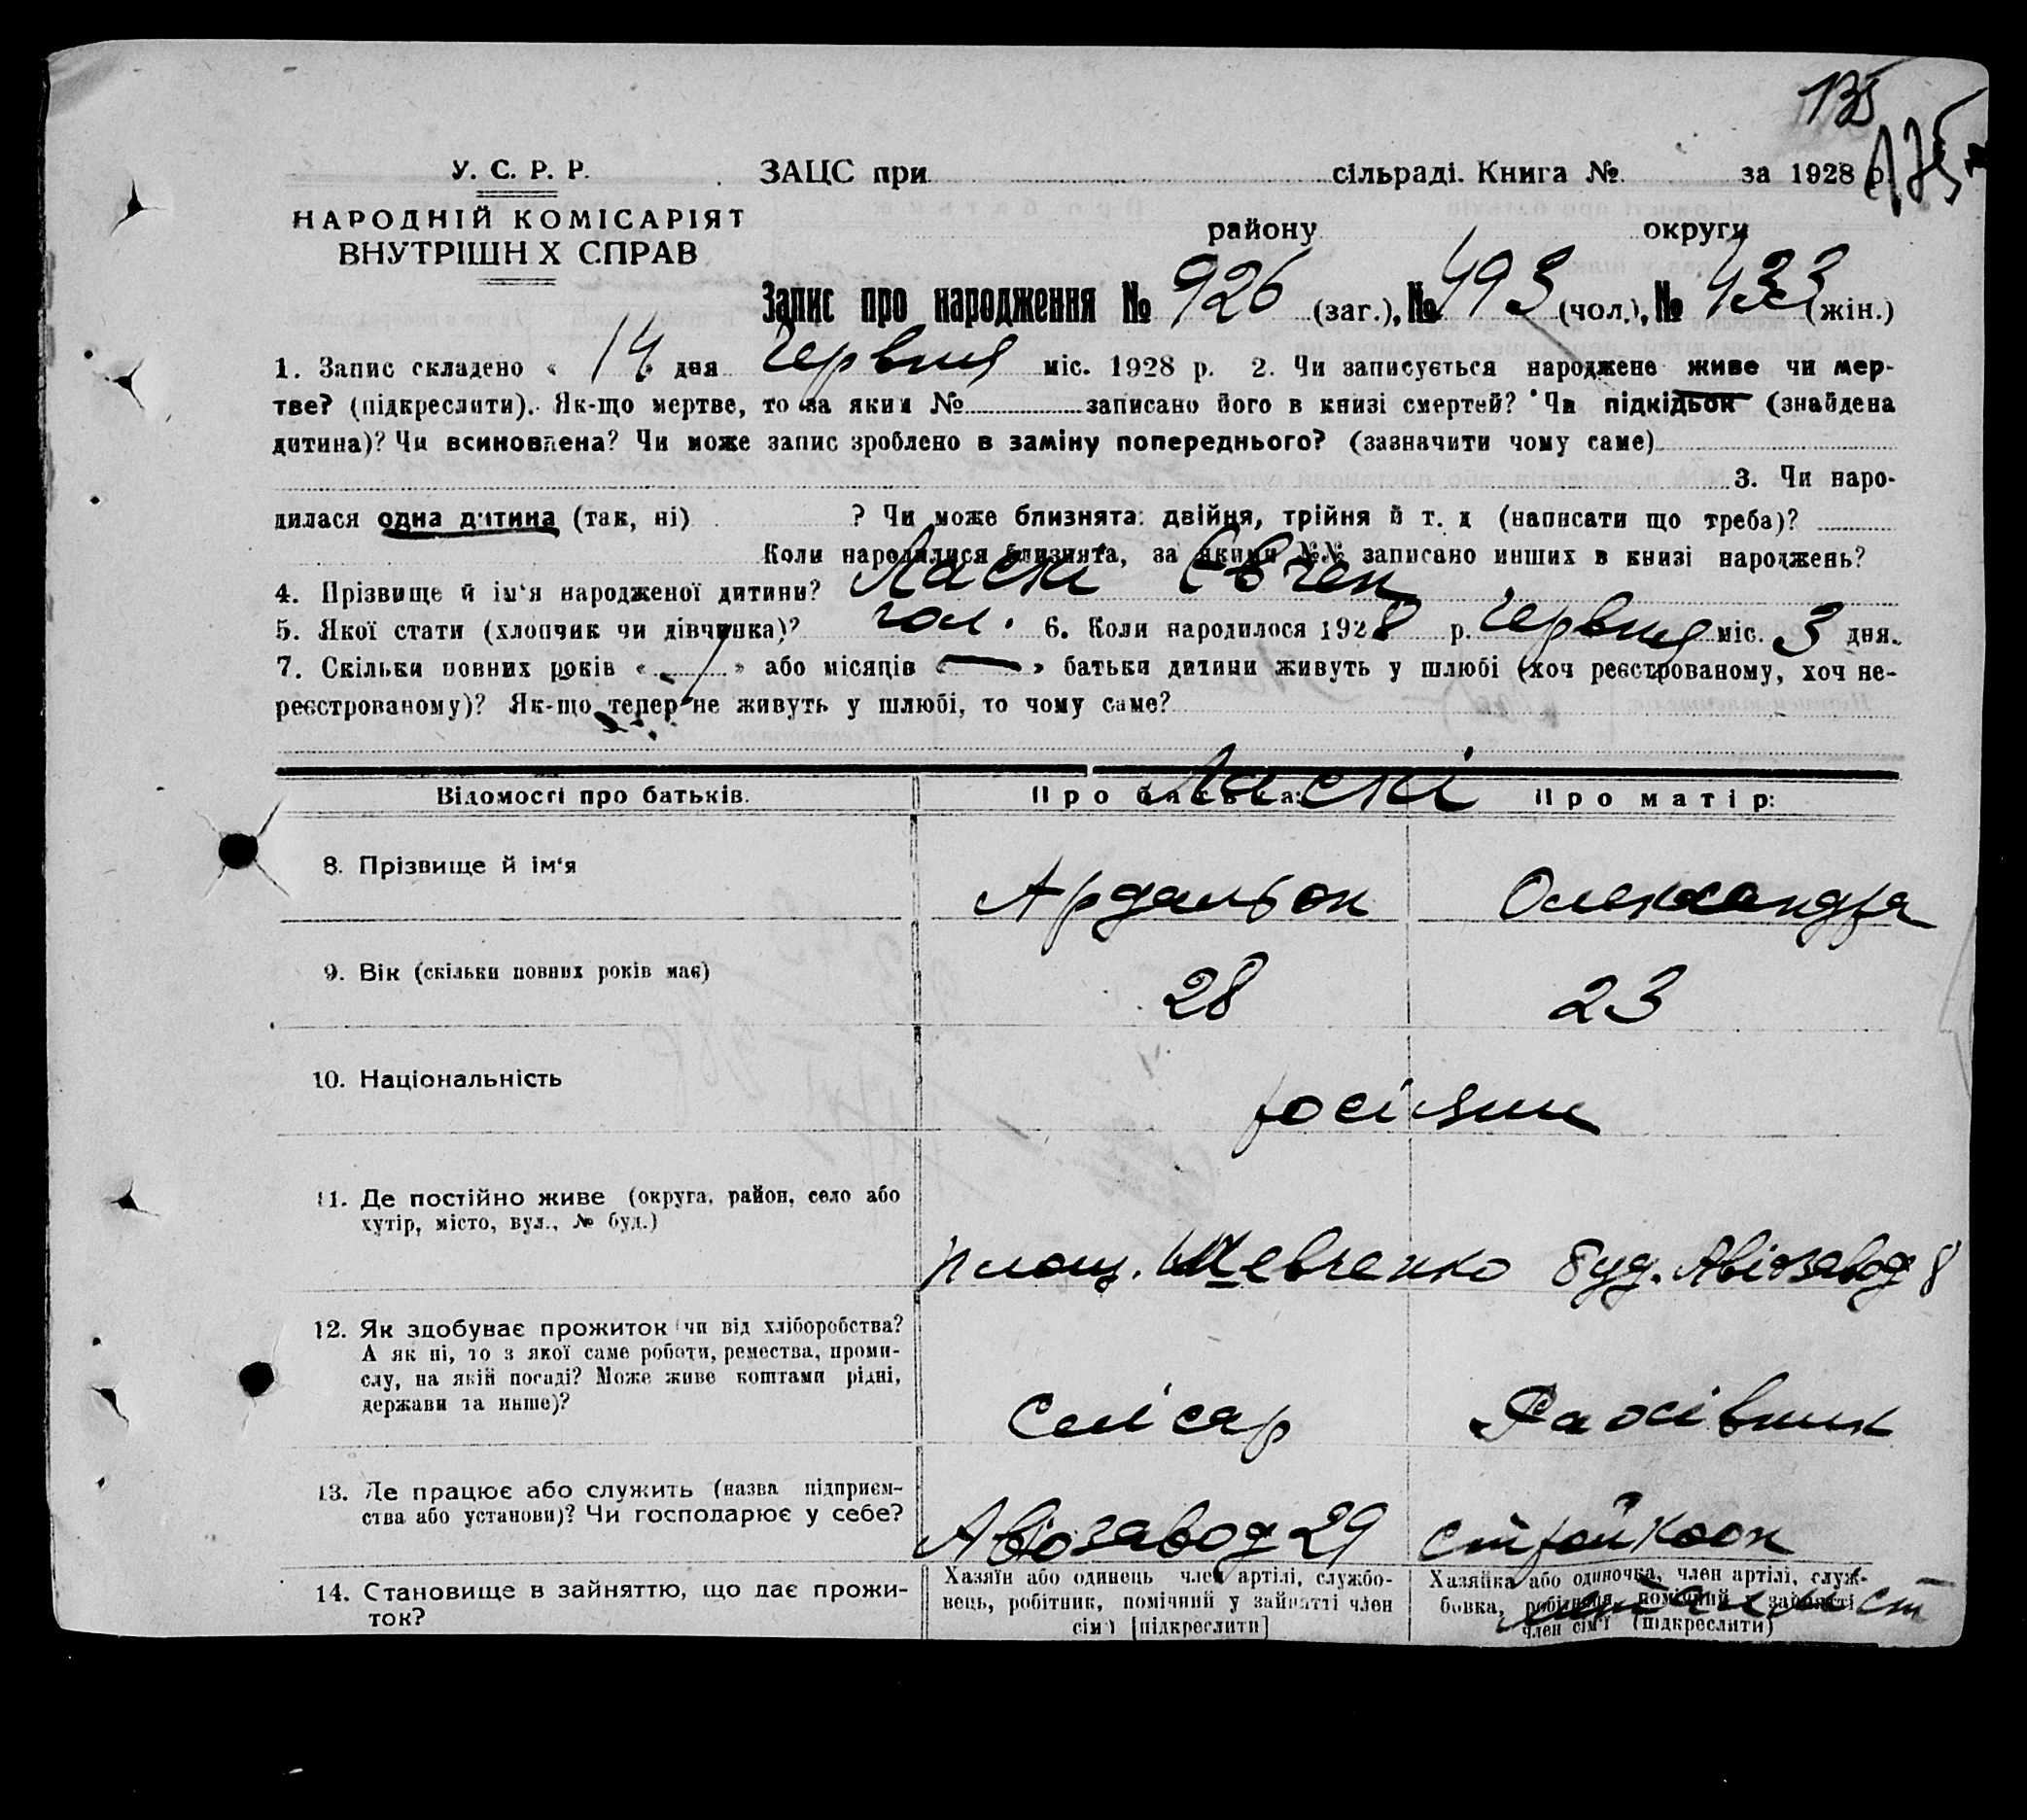 135
175
У. С. Р. Р. ЗАЦС при сільраді. Книга № за 1928 р.
НАРОДНІЙ КОМІСАРІЯТ
ВНУТРІШН Х СПРАВ
району округи
Запис про народження № 926 (заг.), № 493 (чол.), № 433 (жін.)
1. Запис складено « 14 » дня Червня міс. 1928 р. 2. Чи записується народжене живе чи мер-
тве? (підкреслити). Як-що мертве, то за яким № записано його в книзі смертей? Чи підкідьок (знайдена
дитина)? Чи всиновлена? Чи може запис зроблено в заміну попереднього? (зазначити чому саме)
3. Чи наро-
дилася одна дитина (так, ні) ? Чи може близнята: двійня, трійня й т. д (написати що треба)?
Коли народилися близнята, за якими №№ записано инших в книзі народжень?
4. Прізвище й ім'я народженої дитини? Ласкі Євген
5. Якої стати (хлопчик чи дівчинка)? чол. 6. Коли народилося 1928 р. Червня міс. 3 дня.
7. Скільки повних років « » або місяців « — » батьки дитини живуть у шлюбі (хоч реєстрованому, хоч не-
реєстрованому)? Як-що тепер не живуть у шлюбі, то чому саме?
Відомості про батьків. Про батька: Ласкі Про матір:
8. Прізвище й ім'я Ардальон Олександра
9. Вік (скільки повних років має) 28 23
10. Національність росіяни
11. Де постійно живе (округа, район, село або
хутір, місто, вул., № буд.)
площ. Шевченко буд. Авіозавод 8
12. Як здобуває прожиток (чи від хліборобства?
А як ні, то з якої саме роботи, ремества, проми-
слу, на якій посаді? Може живе коштами рідні,
держави та инше)?
Слісар
13. Де працює або служить (назва підприєм-
ства або установи)? Чи господарює у себе?
Авіозавод 29
14. Становище в зайняттю, що дає прожи-
ток?
Хазяїн або одинець член артілі, службо-
вець, робітник, помічний у зайнятті член
сім'ї [підкреслити]
Хазяйка або одиночка, член артілі, служ-
бовка, робітниця, помічний у зайнятті
член сім'ї (підкреслити)